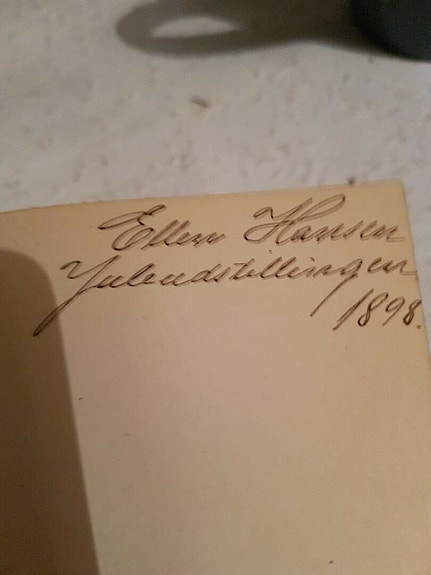 Ellen Hansen
Juleudstillingen
1898.